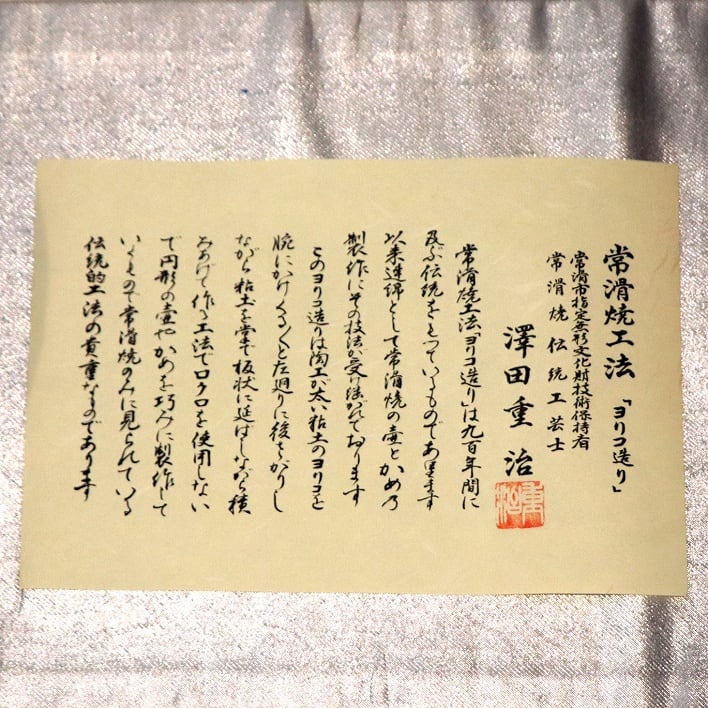 常滑焼工法 「ヨリコ造り」
常滑市指定無形文化財技術保持者
常滑焼伝統工芸士
澤田重治
常滑焼工法「ヨリコ造り」は九百年間に
及ぶ伝統をもっているものであります
以来連綿として常滑焼の壷とかめの
製作にその技法が受け継がれております
このヨリコ造りは陶工が太い粘土のヨリコを
腕にかけくる〱と左廻りに後ずさりし
ながら粘土を掌で板状に延ばしながら積
みあげて作る工法でロクロを使用しない
で円形の壷やかめを巧みに製作して
いくもので常滑焼のみに見られている
伝統的工法の貴重なものであります
重治